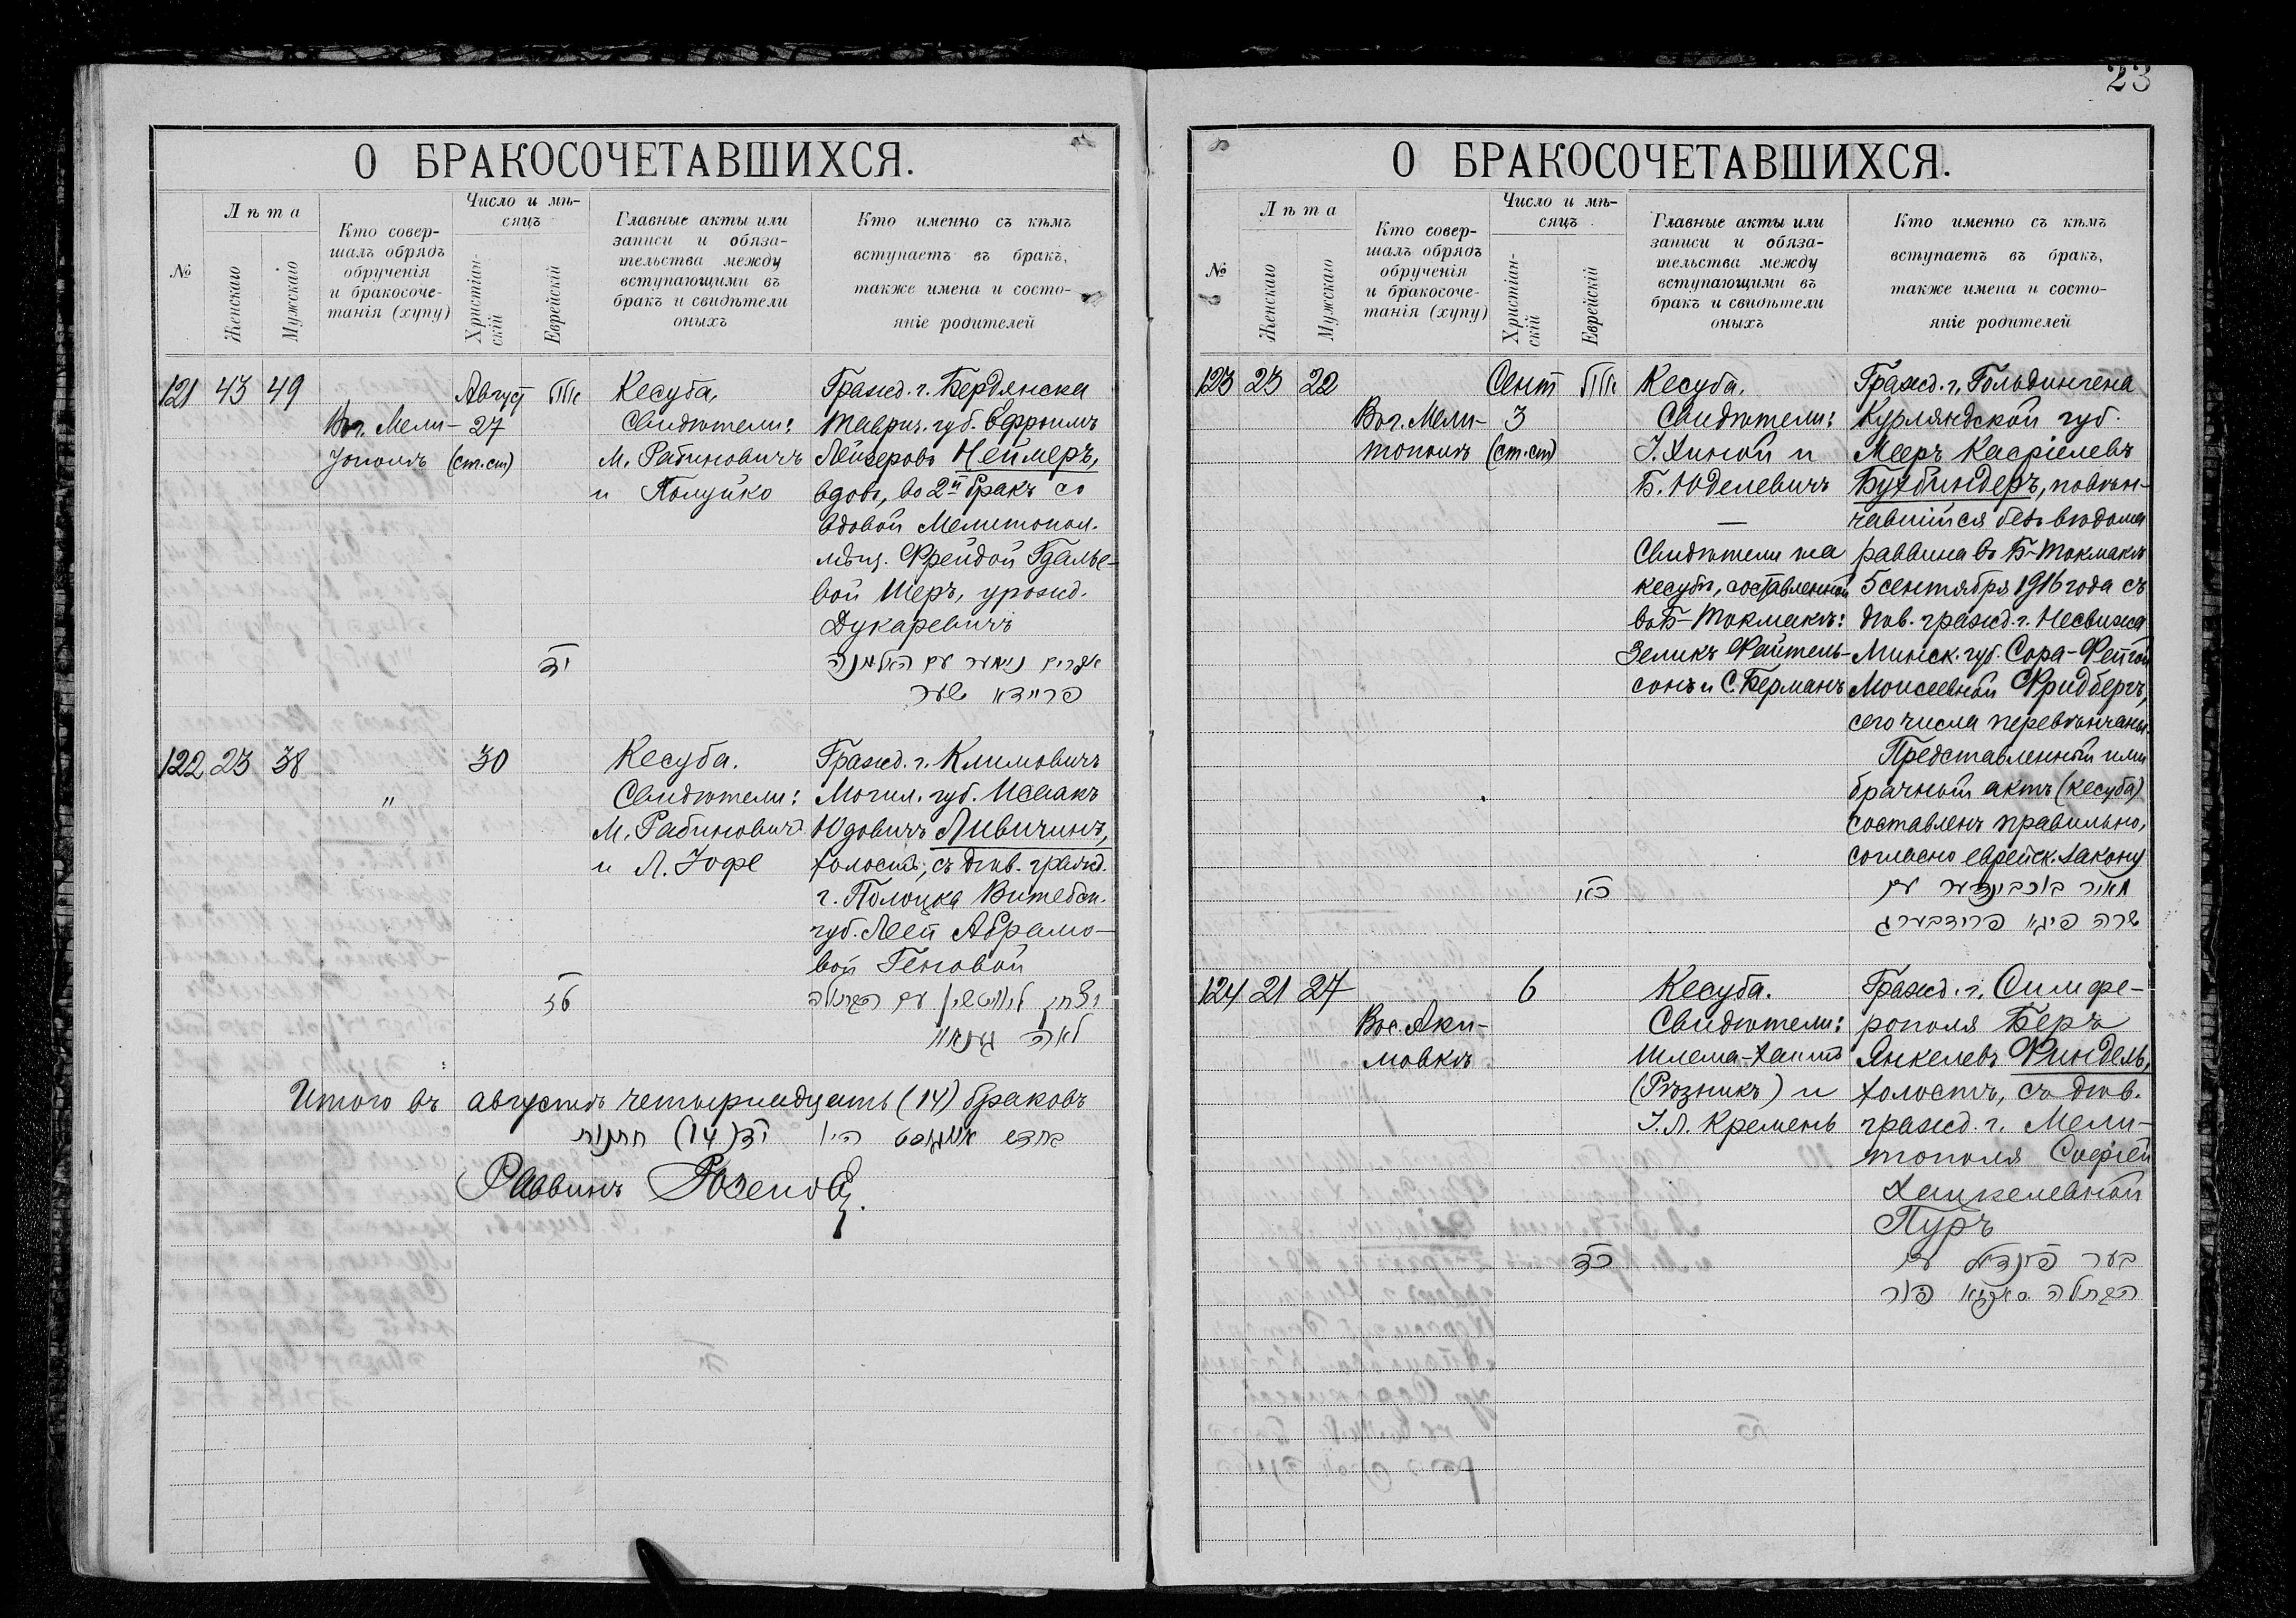 23
О БРАКОСОЧЕТАВШИХСЯ.
№
Лѣта
Женскаго
Мужскаго
Кто совер-
шалъ обрядъ
обрученія
и бракосоче-
танія (хупу)
Число и мѣ-
сяцъ
Христіан-
скій
Еврейскій
Главные акты или
записи и обяза-
тельства между
вступающими въ
бракъ и свидѣтели
оныхъ
Кто именно съ кѣмъ
вступаетъ въ бракъ,
также имена и состо-
яніе родителей
121 43 49
Въ г. Мели-
тополѣ
Август
27
(ст.ст)
Кесуба.
Свидѣтели:
М. Рабиновичъ
и Полуйко
Гражд. г. Бердянска
Таврич. губ. Ефроимъ
Лейзеровъ Неймеръ,
вдов, во 2й бракъ со
вдовой Мелитопол.
мѣщ. Фрейдой Гдалье-
вой Шеръ, урожд.
Дукаревичъ
יד
אפרים ניימער עם האלמנה
פריידא שער
122 23 38
"
30
Кесуба.
Свидѣтели:
М. Рабинович
и Л. Іофе
Гражд. г. Климовичъ
Могил. губ. Исаакъ
Юдовичъ Ливичинъ,
холостъ, съ дѣв. гражд.
г. Полоцка Витебск.
губ. Леей Абрамо-
вой Геновой
יצחק עם הבתולה
לאה
Итого въ августѣ четырнадцать (14) браковъ
בחדש אווגוסט היו יד (14) חתונות
Раввинъ
О БРАКОСОЧЕТАВШИХСЯ.
№
Лѣта
Женскаго
Мужскаго
Кто совер-
шалъ обрядъ
обрученія
и бракосоче-
танія (хупу)
Число и мѣ-
сяцъ
Христіан-
скій
Еврейскій
Главные акты или
записи и обяза-
тельства между
вступающими въ
бракъ и свидѣтели
оныхъ
Кто именно съ кѣмъ
вступаетъ въ бракъ,
также имена и состо-
яніе родителей
123 23 22
Въ г. Мели-
тополѣ
Сент
3
(ст.ст)
Кесуба.
Свидѣтели:
І. Хиной и
Б. Юделевичъ
—
Свидѣтели на
кесубѣ, составленной
въ Б-Токмакѣ:
Зеликъ Файтель-
сонъ и С. Берманъ
Гражд. г. Гольдингена
Курляндской губ.
Мееръ Касріелевъ
Бухбиндеръ, повѣн-
чавшійся безъ вѣдома
раввина въ Б-Токмакѣ
5 сентября 1916 года съ
дѣв. гражд. г. Несвижа
Минск. губ. Сора-Фейгой
Моисеевной Фридбергъ,
сего числа перевѣнчаны.
Представленный ими
брачный актъ (кесуба)
составленъ правильно,
согласно еврейск. закону
כא
מאיר בוכבינדער עם
שרה פיגא פרידבערג
124 21 27
Въ с. Аки-
мовкѣ
6
Кесуба.
Свидѣтели:
Шлема-Хаимъ
(Рѣзникъ) и
І. Л. Кремень
Гражд. г. Симфе-
рополя Беръ
Янкелевъ Финдель,
холостъ, съ дѣв.
гражд. г. Мели-
тополя Софіей
Хацкелевной
Пуръ
כד
בער פינדיל עם
הבתולה סאפיא פור